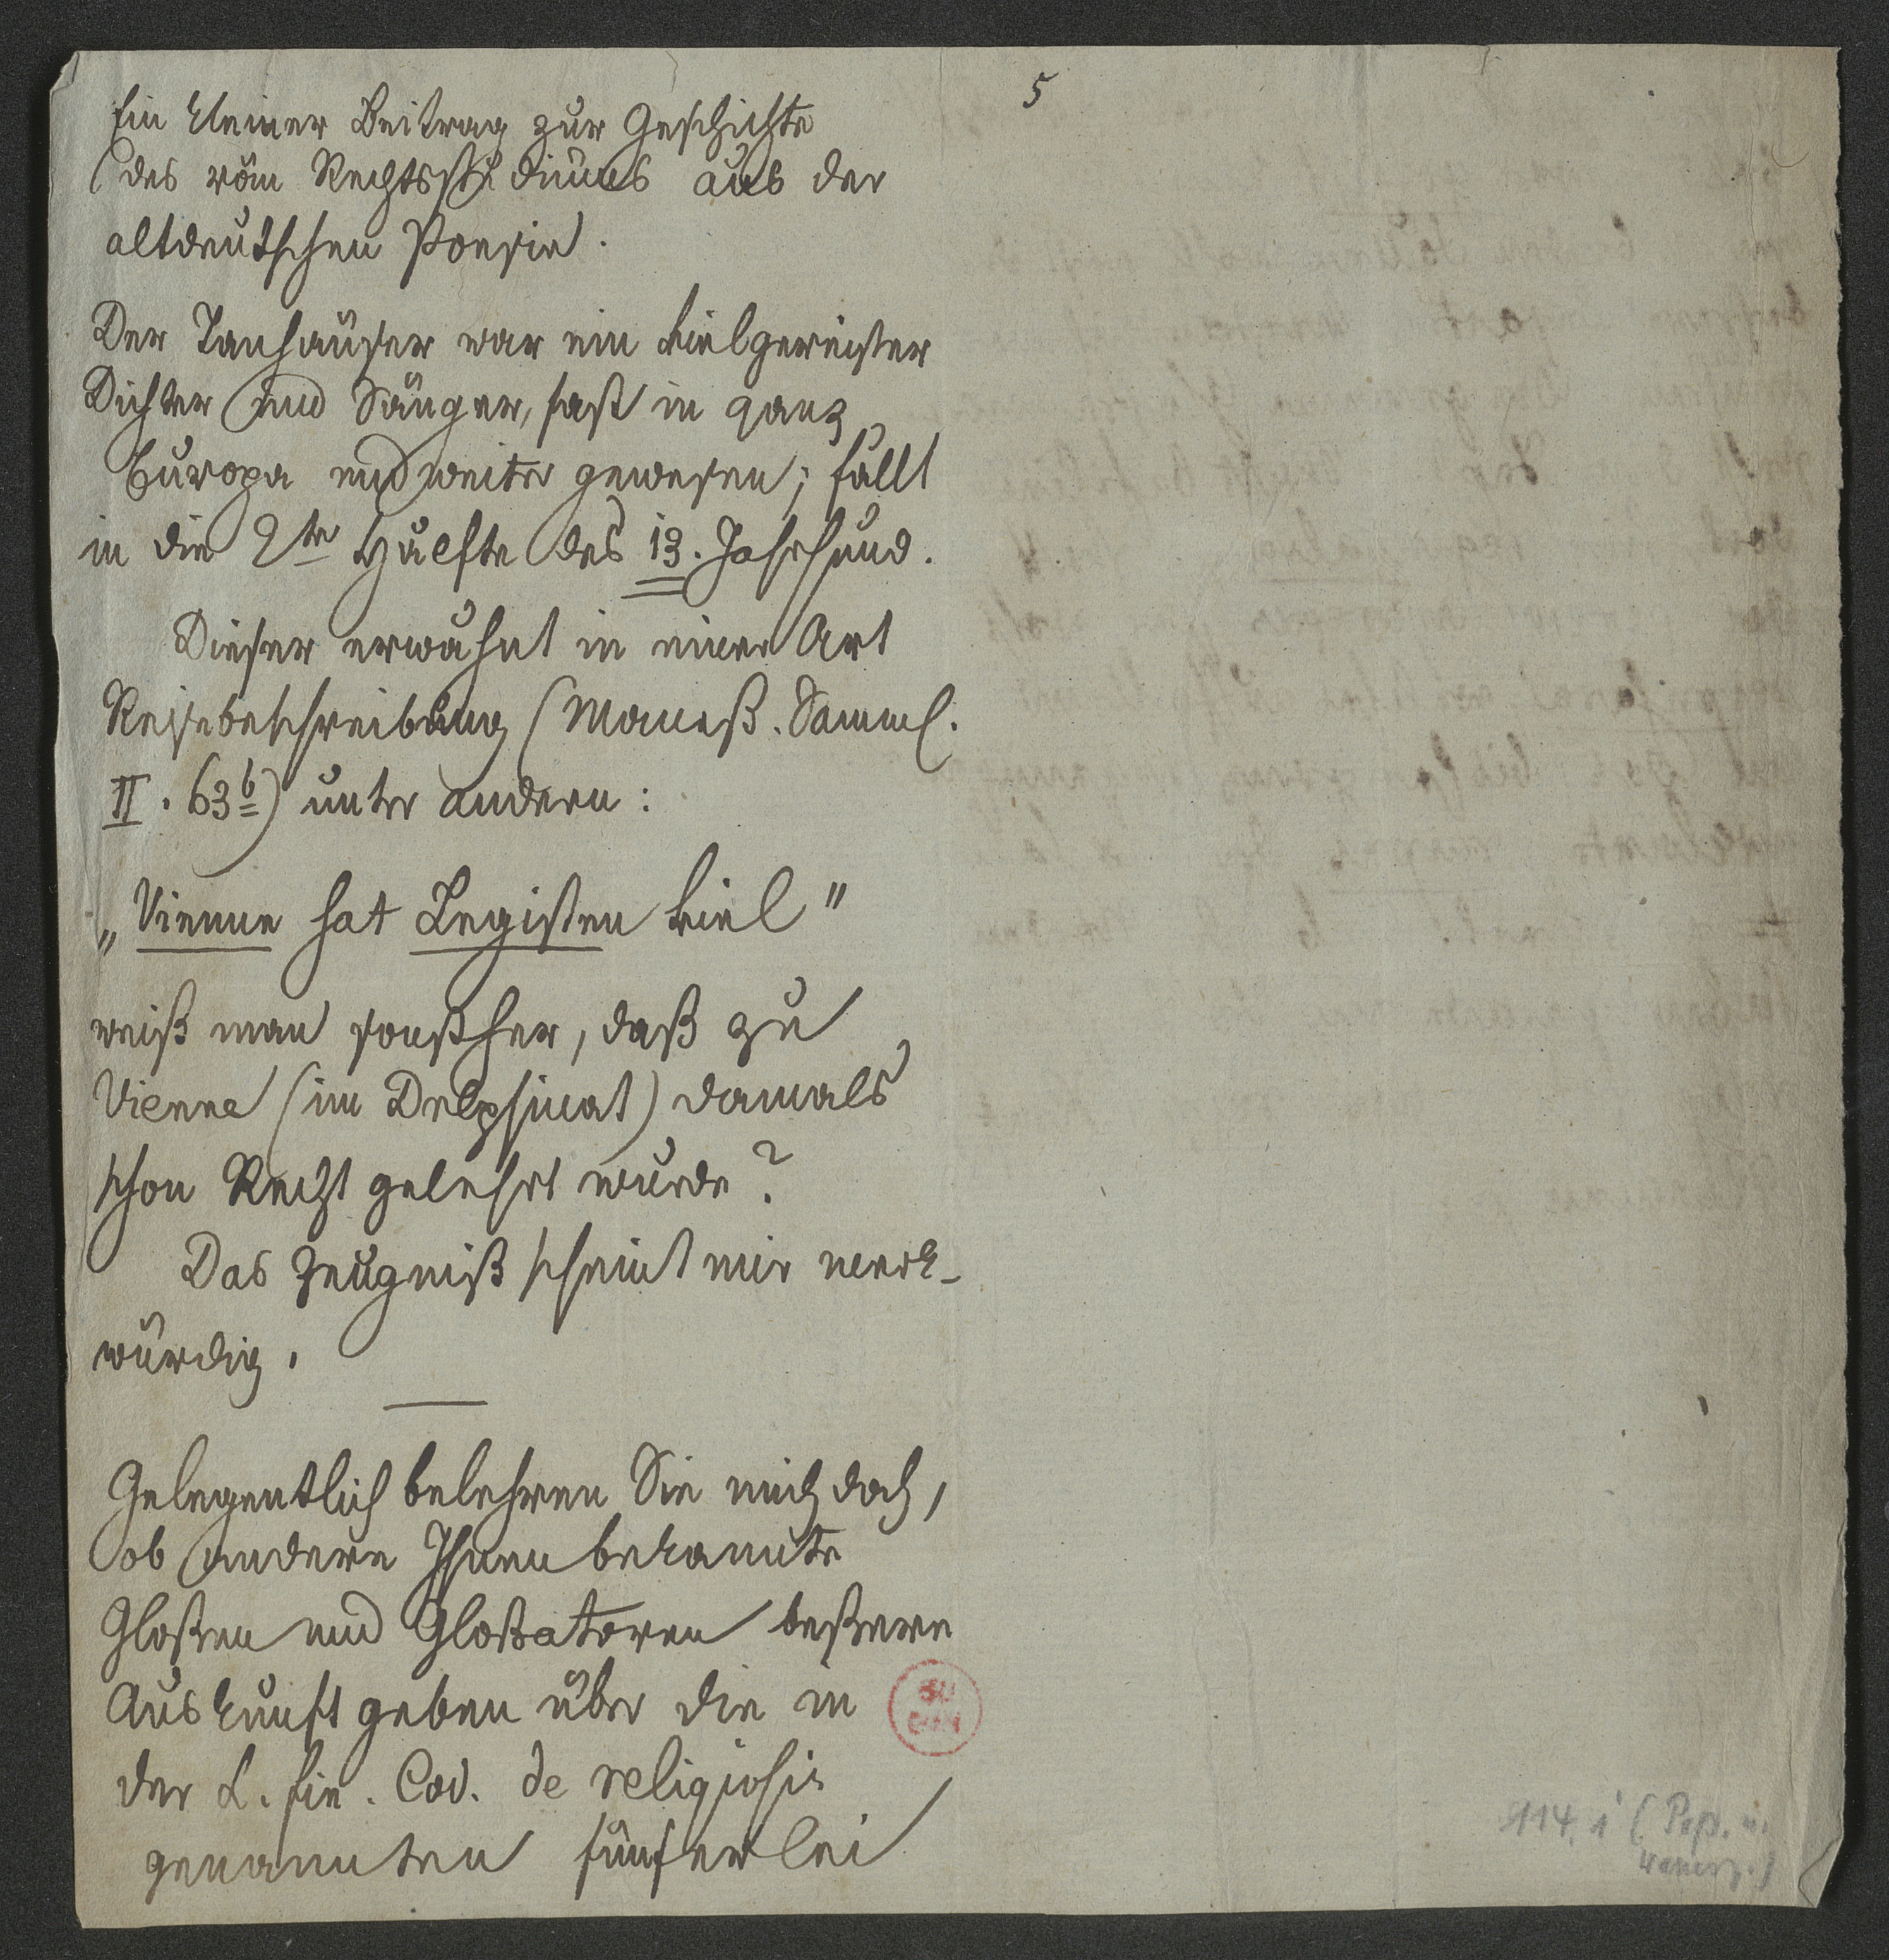 5
Ein kleiner Beitrag zur Geschichte
des röm Rechtsstudiums aus der
altdeutschen Poesie.
Der Tanhäuser war ein vielgereister
Dichter und Sänger, fast in ganz
Europa und weiter gewesen; fällt
in die 2te Hälfte des 13. Jahrhund.
Dieser erwähnt in einer Art
Reisebeschreibung (Maneß. Samml.
II. 63b) unter andern:
„Vienne hat Legisten viel"
weiß man sonsther, daß zu
Vienne (im Delphinat) damals
schon Recht gelehrt wurde?
Das Zeugniß scheint mir merk-
würdig.
Gelegentlich belehren Sie mich doch,
ob andere Ihnen bekannte
Gloßen und Gloßatoren beßere
Auskunft geben über die in
der L. fin. Cod. de religiosis
genannten fünferlei
114, 1 (